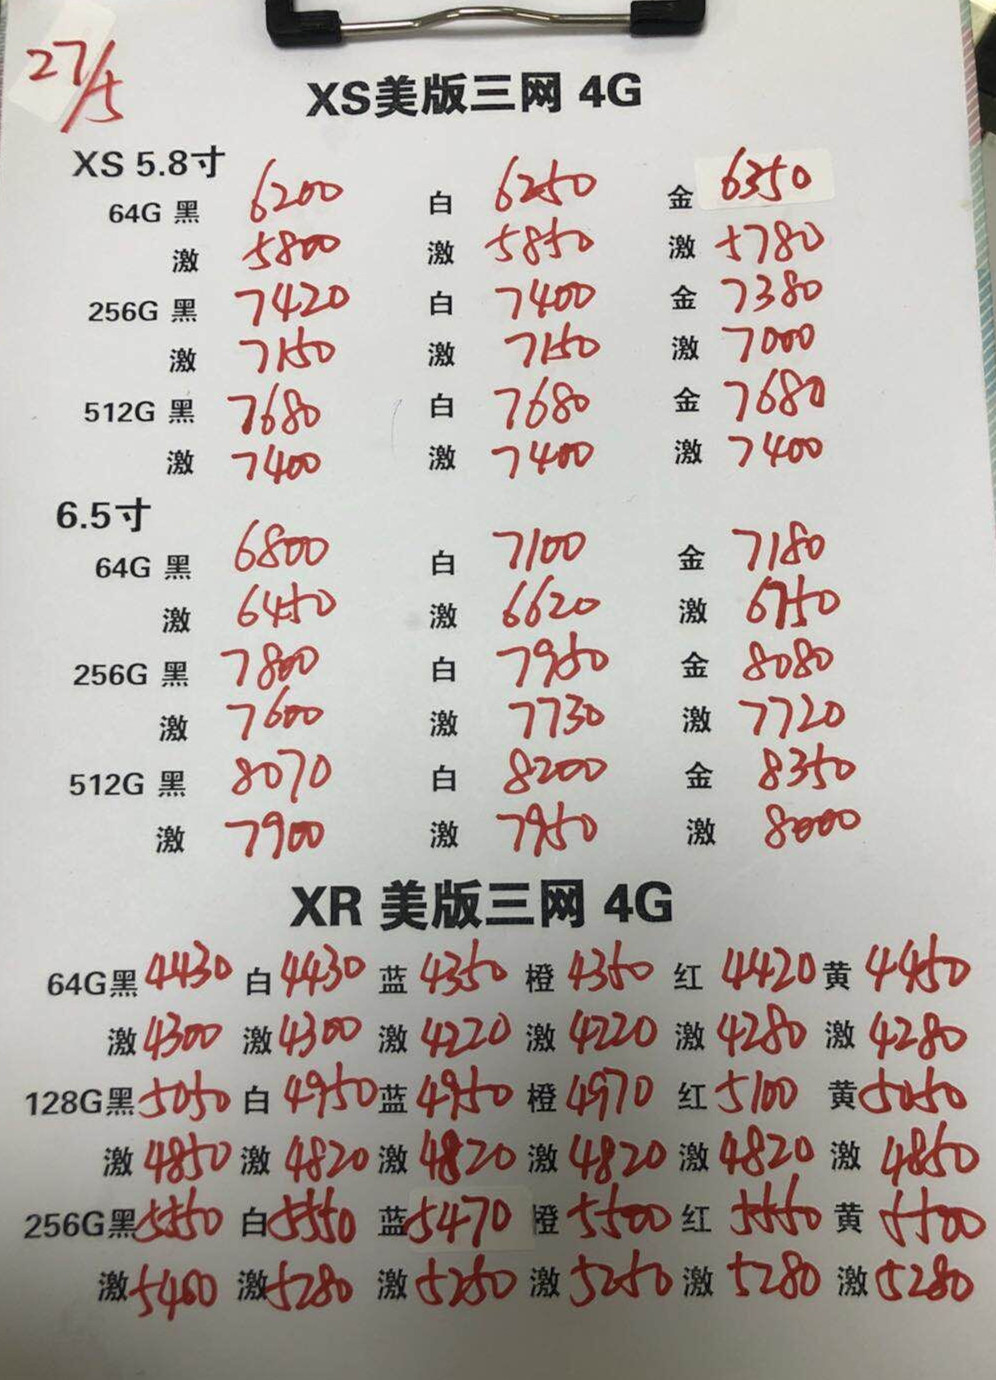 27/5
XS美版三网 4G
XS 5.8寸
64G 黑 6200 白 6250 金 6350
激 5800 激 5850 激 5780
256G 黑 7420 白 7400 金 7380
激 7150 激 7150 激 7000
512G 黑 7680 白 7680 金 7680
激 7400 激 7400 激 7400
6.5寸
64G 黑 6800 白 7100 金 7180
激 6450 激 6620 激 6750
256G 黑 7800 白 7950 金 8080
激 7600 激 7730 激 7720
512G 黑 8070 白 8200 金 8350
激 7900 激 7950 激 8000
XR 美版三网 4G
64G黑 4430 白 4430 蓝 4350 橙 4350 红 4420 黄 4450
激 4300 激 4300 激 4220 激 4220 激 4280 激 4280
128G黑 5050 白 4950 蓝 4950 橙 4970 红 5100 黄 5050
激 4850 激 4820 激 4820 激 4820 激 4820 激 4850
256G黑 5550 白 5550 蓝 5470 橙 5500 红 5550 黄 5500
激 5400 激 5280 激 5250 激 5250 激 5280 激 5280